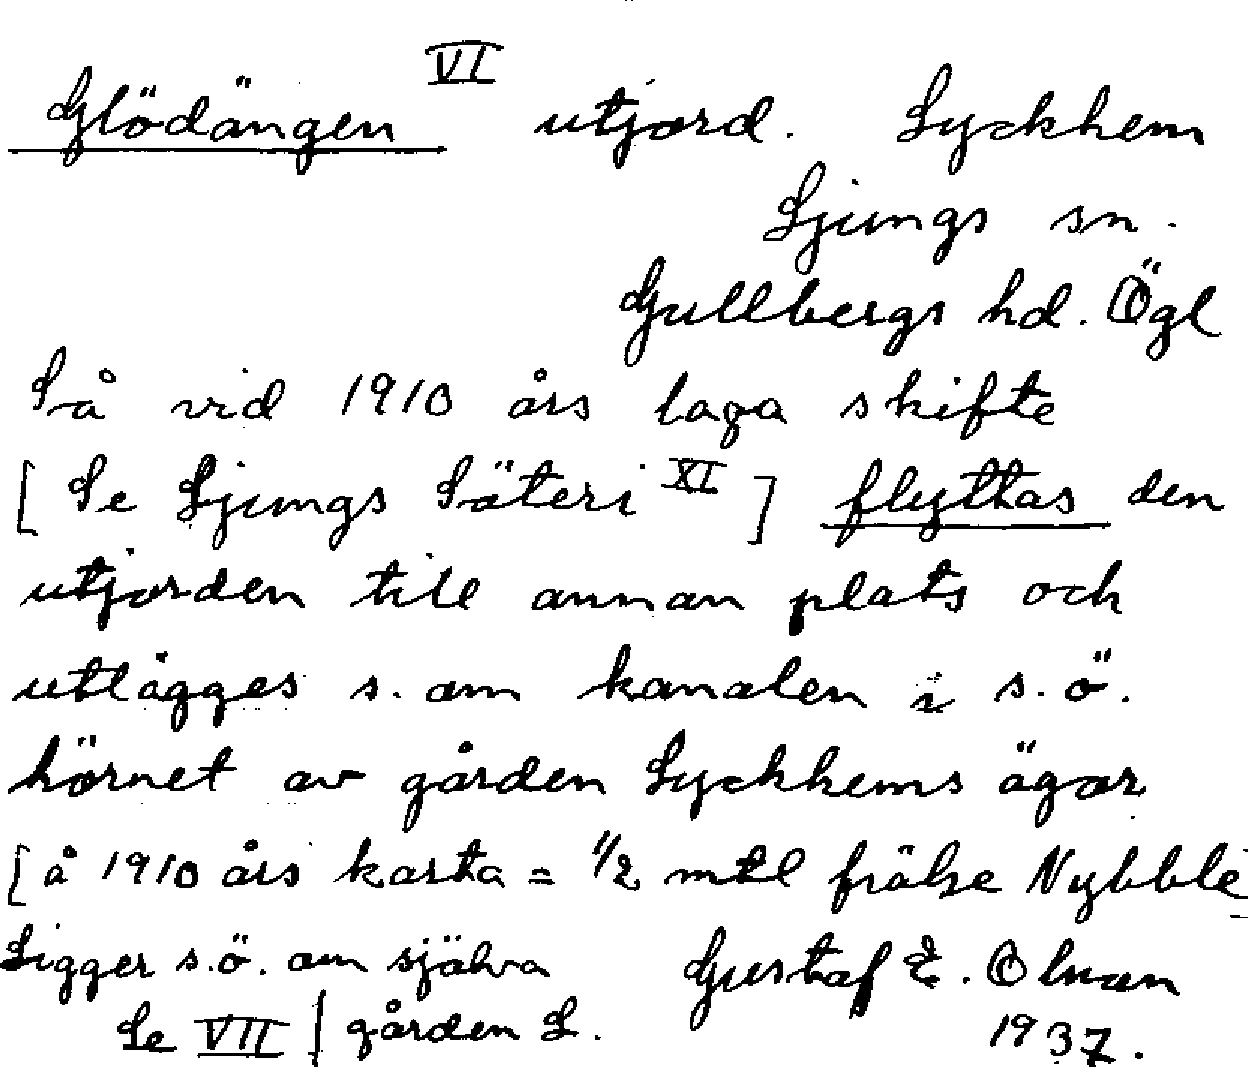 Glödängen VI utjord. Lyckhem
Ljungs sn.
Gullbergs hd. Ögl
Så vid 1910 års laga skifte
[ Se Ljungs Säteri XI ] flyttas den
utjorden till annan plats och
utlägges s. om kanalen i s.ö.
hörnet av gården Lyckhems ägor
[ å 1910 års karta = 1/2 mtl frälse Nybble
Ligger s.ö. om själva
gården L.
Se VII
Gustaf E. Olman
1937.